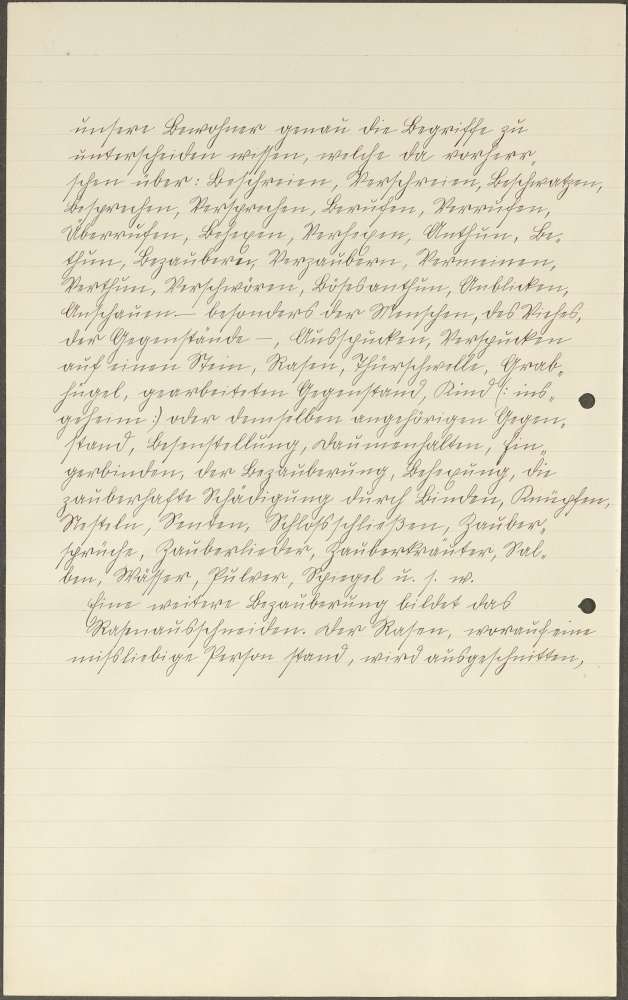 unsere Bewohner genau die Begriffe zu
unterscheiden wissen, welche da vorherr„
schen über: Beschreien, Verschreien, Beschwatzen,
Besprechen, Versprechen, Berufen, Verrufen,
Überrufen, Behexen, Verhexen, Anthun, Be„
thun, Bezaubern, Verzaubern, Vermeinen,
Verthun, Verschwören, Bösesanthun, Anblicken,
Anschauen – besonders der Menschen, des Viehes,
der Gegenstände –, Ausspucken, Verspucken
auf einen Stein, Rasen, Thürschwelle, Grab„
hügel, gearbeiteten Gegenstand, Kind (: ins„
geheim :) oder demselben angehörigen Gegen„
stand, Besenstellung, Daumenhalten, Fin„
gerbinden, der Bezauberung, Behexung, die
zauberhafte Schädigung durch Binden, Knüpfen,
Nesteln, Senden, Schlossschließen, Zauber„
sprüche, Zauberlieder, Zauberkräuter, Sal„
ben, Wässer, Pulver, Spiegel u. s. w.
Eine weitere Bezauberung bildet das
Rasenausschneiden. Der Rasen, worauf eine
missliebige Person stand, wird ausgeschnitten,